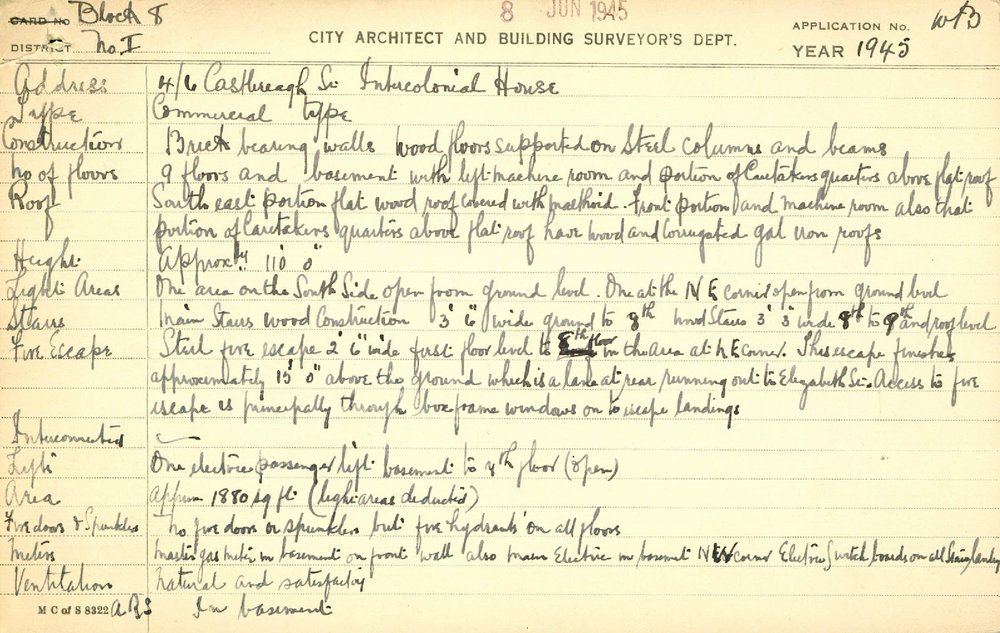 CARD No Block 8
8 JUN 1945
DISTRICT No. I
CITY ARCHITECT AND BUILDING SURVEYOR'S DEPT.
APPLICATION No. WB
YEAR 1945
Address 4/6 Castlereagh St Intercolonial House
Type Commercial type
Construction Brick bearing walls wood floors supported on Steel columns and beams
No of floors 9 floors and basement with lift machine room and portion of Caretakers quarters above flat roof
Roof South east portion flat wood roof covered with malthoid. Front portion and machine room also that
portion of Caretakers quarters above flat roof have wood and corrugated gal iron roofs
Height Approxly 110' 0"
Light Areas One area on the South Side open from ground level. One at the N E corner open from ground level
Stairs Main Stairs wood Construction 3' 6" wide ground to 8th wood Stairs 3' 3" wide 8th to 9th and roof level
Fire Escape Steel fire escape 2' 6" wide first floor level to 8th floor in the area at N E corner. This escape finishes
approximately 15' 0" above the ground which is a lane at rear running out to Elizabeth St. Access to fire
escape is principally through box frame windows on to escape landings
Interconnected
Lifts One electric passenger lift basement to 8th floor (open)
Area Approx 1880 sq ft (light areas deducted)
Fire doors & Sprinklers No fire doors or sprinklers but fire hydrants on all floors
Meters Master gas meter in basement on front wall also main Electric in basement NW corner Electric Switch boards on all Stair landings
Ventilation Natural and satisfactory
M C of S 8322 A R S In basement